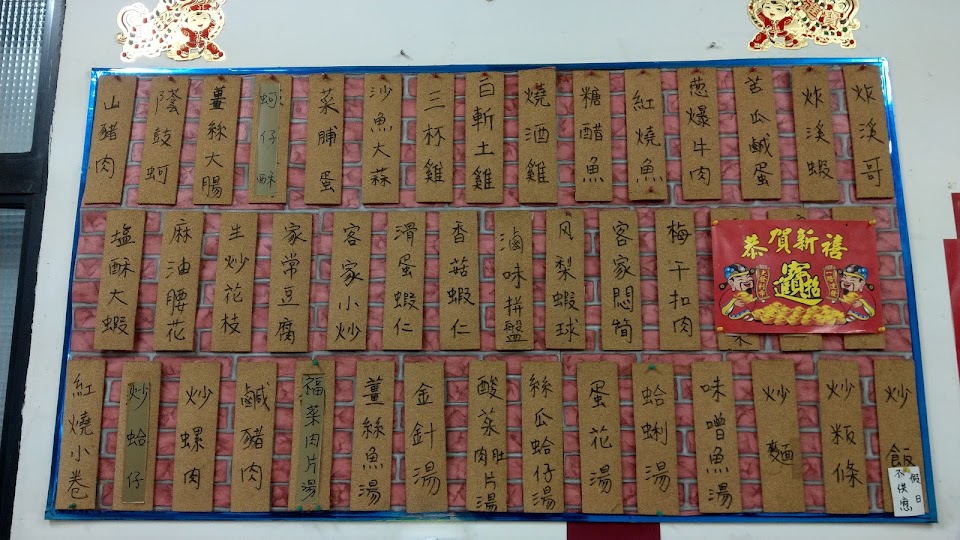 炸溪哥
炸溪蝦
苦瓜鹹蛋
葱爆牛肉
紅燒魚
糖醋魚
燒酒雞
白斬土雞
三杯雞
沙魚大蒜
菜脯蛋
蚵仔酥
薑絲大腸
蔭鼓蚵
山豬肉
恭賀新禧
梅干扣肉
客家悶筍
风梨蝦球
滷味拼盤
香菇蝦仁
滑蛋蝦仁
客家小炒
家常豆腐
生炒花枝
麻油腰花
塩酥大蝦
炒飯
假日
不供應
炒粄條
炒麵
味噌魚湯
蛤蜊湯
蛋花湯
絲瓜蛤仔湯
酸菜肉肚片湯
金針湯
薑絲魚湯
福菜肉片湯
鹹豬肉
炒螺肉
炒蛤仔
紅燒小卷